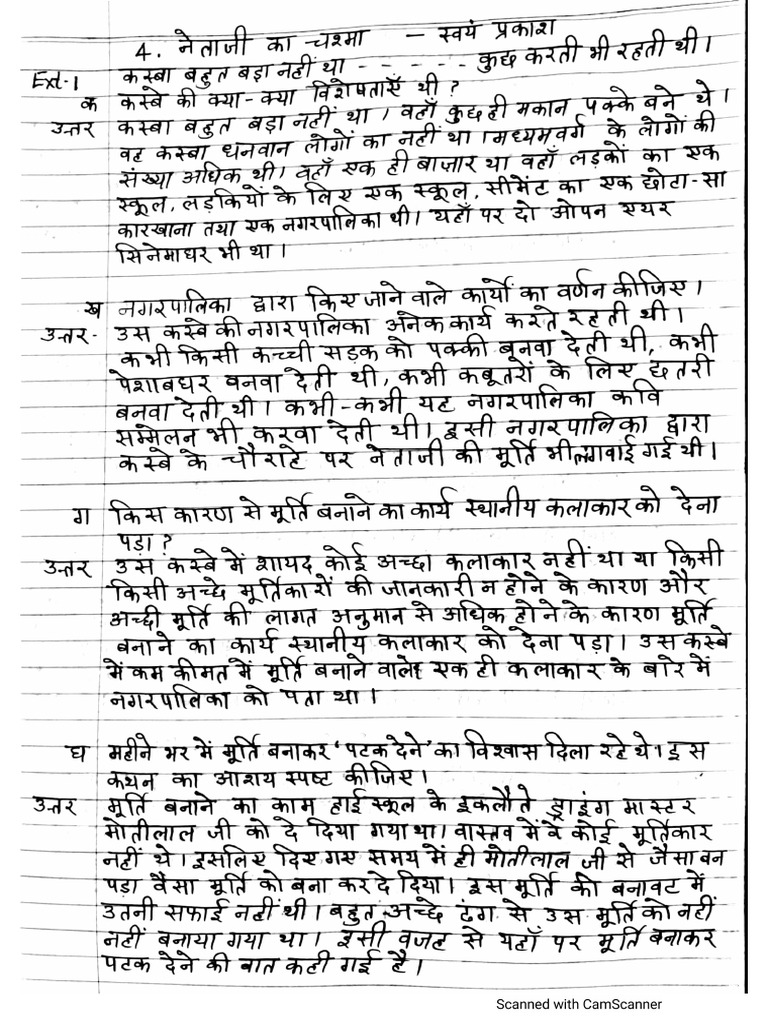 4. नेताजी का चश्मा – स्वयं प्रकाश
Ext-1 कस्बा बहुत बड़ा नहीं था - - - - - - कुछ करती भी रहती थी।
क कस्बे की क्या-क्या विशेषताएँ थी ?
उत्तर कस्बा बहुत बड़ा नहीं था। वहाँ कुछ ही मकान पक्के बने थे।
वह कस्बा धनवान लोगों का नहीं था। मध्यमवर्ग के लोगों की
संख्या अधिक थी। वहाँ एक ही बाज़ार था वहाँ लड़कों का एक
स्कूल, लड़कियों के लिए एक स्कूल, सीमेंट का एक छोटा-सा
कारखाना तथा एक नगरपालिका थी। यहाँ पर दो ओपन एयर
सिनेमाघर भी था।
ख नगरपालिका द्वारा किए जाने वाले कार्यों का वर्णन कीजिए।
उत्तर- उस कस्बे की नगरपालिका अनेक कार्य करते रहती थी।
कभी किसी कच्ची सड़क को पक्की बनवा देती थी, कभी
पेशाबघर बनवा देती थी, कभी कबूतरों के लिए छतरी
बनवा देती थी। कभी-कभी यह नगरपालिका कवि
सम्मेलन भी करवा देती थी। इसी नगरपालिका द्वारा
कस्बे के चौराहे पर नेताजी की मूर्ति भी लगवाई गई थी।
ग किस कारण से मूर्ति बनाने का कार्य स्थानीय कलाकार को देना
पड़ा ?
उत्तर उस कस्बे में शायद कोई अच्छा कलाकार नहीं था या किसी
किसी अच्छे मूर्तिकारों की जानकारी न होने के कारण और
अच्छी मूर्ति की लागत अनुमान से अधिक होने के कारण मूर्ति
बनाने का कार्य स्थानीय कलाकार को देना पड़ा। उस कस्बे
में कम कीमत में मूर्ति बनाने वाले एक ही कलाकार के बारे में
नगरपालिका को पता था।
घ महीने भर में मूर्ति बनाकर 'पटक देने' का विश्वास दिला रहे थे। इस
कथन का आशय स्पष्ट कीजिए।
उत्तर मूर्ति बनाने का काम हाई स्कूल के इकलौते ड्राइंग मास्टर
मोतीलाल जी को दे दिया गया था। वास्तव में वे कोई मूर्तिकार
नहीं थे। इसलिए दिए गए समय में ही मोतीलाल जी से जैसा बन
पड़ा वैसा मूर्ति को बना कर दे दिया। इस मूर्ति की बनावट में
उतनी सफाई नहीं थी। बहुत अच्छे ढंग से उस मूर्ति को नहीं
नहीं बनाया गया था। इसी वजह से यहाँ पर मूर्ति बनाकर
पटक देने की बात कही गई है।
Scanned with CamScanner